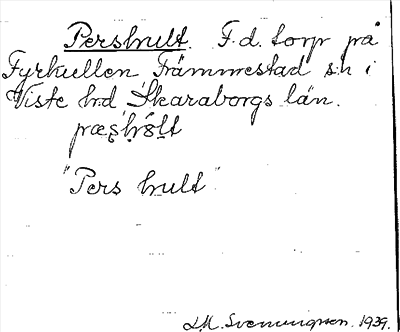 Pershult. F.d. torp på
Fyrkullen Främmestad sn i
Viste hd Skaraborgs län.
"Pers hult"
L.M. Svenungsson. 1939.